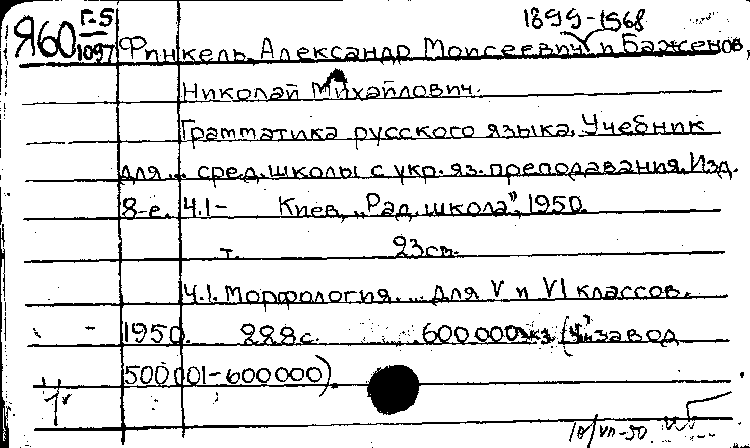 Я60 Г-5/1097
1899-1968
Финкель, Александр Моисеевич и Баженов,
Николай Михайлович.
Грамматика русского языка. Учебник
для... сред. школы с укр. яз. преподавания. Изд.
8-е. Ч.1- Киев, "Рад. школа", 1950.
т. 23см.
Ч.1. Морфология. ... для V и VI классов.
1950. 228с. 600000 экз. (4й завод
500001-600000).
10/VII-50